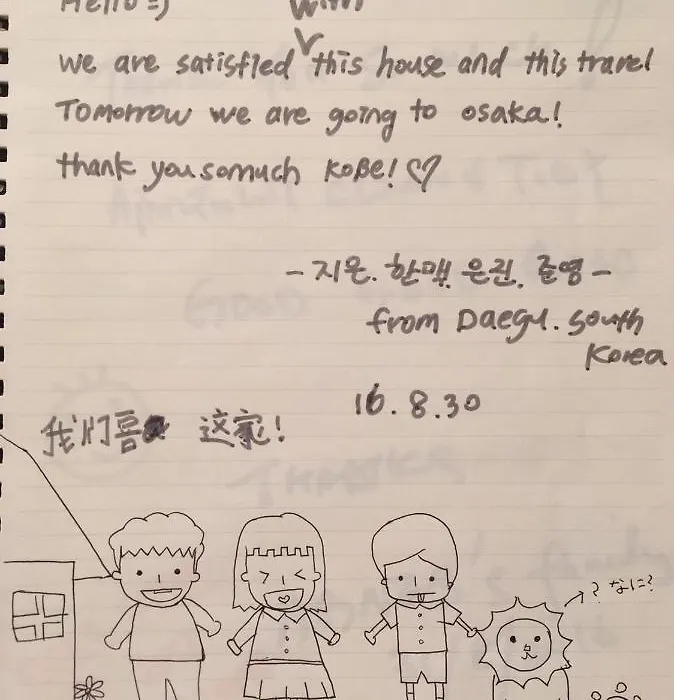 Hello =)
with
we are satisfied this house and this travel
Tomorrow we are going to osaka!
thank you somuch KoBe! ♡
- 지온. 한맥. 은진. 준영 -
from Daegu. south
Korea
16. 8. 30
我们喜 这家!
? なに?